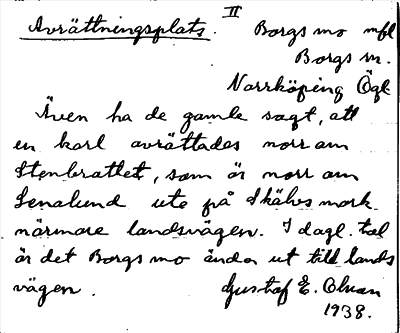 II
Avrättningsplats. Borgs mo mfl
Borgs sn.
Norrköping Ögl
Även ha de gamle sagt, att
en karl avrättades norr om
Stenbrottet, som är norr om
Lenalund ute på Skälvs mark
närmare landsvägen. I dagl. tal
är det Borgs mo ända ut till lands
vägen. Gustaf E. Olsson
1938.